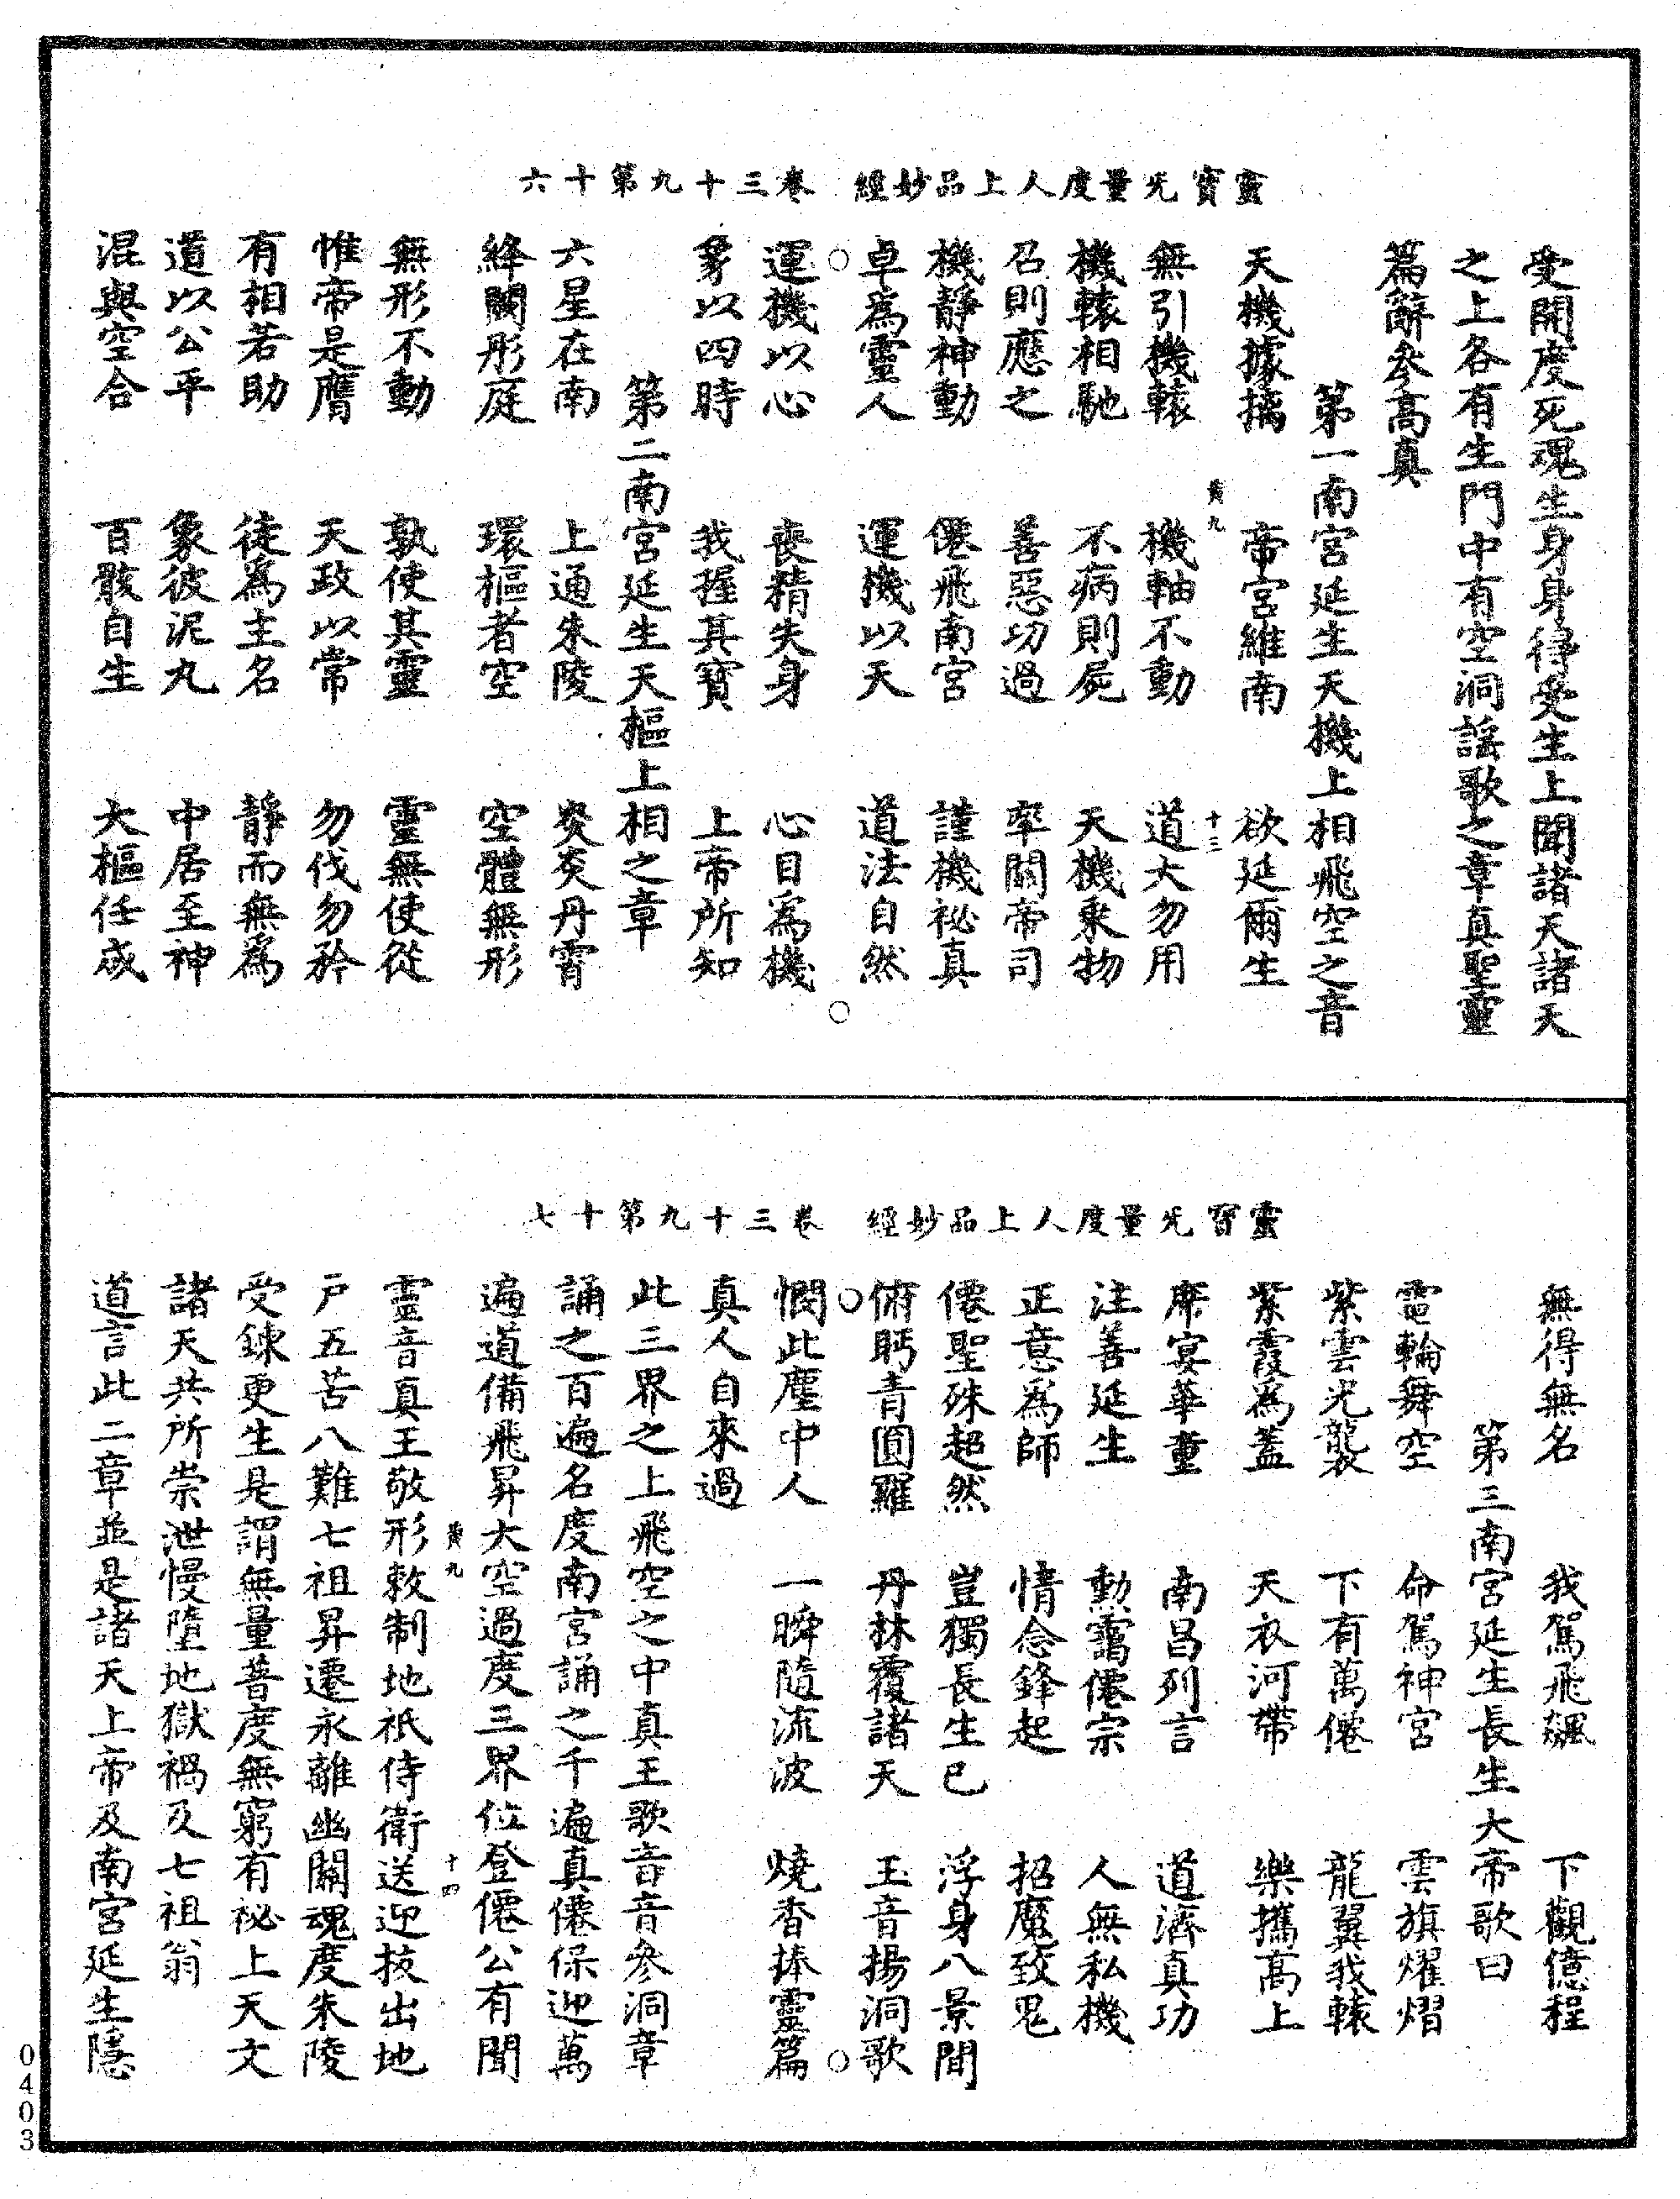 靈寶无量度人上品妙經　卷三十九第十六
受開度死魂生身身得受生上聞諸天諸天
之上各有生門中有空洞謠歌之章真聖靈
篇辭參高真
第一南宮延生天機上相飛空之音
天機據摛　帝宮維南　欲延爾生
黃九　十三
無引機轅　機軸不動　道大勿用
機轅相馳　不病則屍　天機秉物
召則應之　善惡功過　率關帝司
機靜神動　僊飛南宮　謹機祕真
卓為靈人　運機以天　道法自然
運機以心　喪精失身　心目為機
象以四時　我握其寶　上帝所知
第二南宮延生天樞上相之章
六星在南　上通朱陵　炎炎丹霄
絳闕彤庭　環樞者空　空體無形
無形不動　孰使其靈　靈無使從
惟帝是膺　天政以常　勿伐勿矜
有相若助　徒為主名　靜而無為
道以公平　象彼泥丸　中居至神
混與空合　百骸自生　大樞任成
靈寶无量度人上品妙經　卷三十九第十七
無得無名　我駕飛飈　下觀億程
第三南宮延生長生大帝歌曰
電輪舞空　命駕神宮　雲旗燿熠
紫雲光襲　下有萬僊　龍翼我轅
紫霞為蓋　天衣河帶　樂攜高上
席宴華童　南昌列言　道濟真功
注善延生　勲藹僊宗　人無私機
正意為師　情念鋒起　招魔致鬼
僊聖殊超然　豈獨長生已　浮身八景間
俯眄青圓羅　丹林覆諸天　玉音揚洞歌
憫此塵中人　一瞬隨流波　燒香捧靈篇
真人自來過
此三界之上飛空之中真王歌音音參洞章
誦之百遍名度南宮誦之千遍真僊保迎萬
遍道備飛昇大空過度三界位登僊公有聞
黃九　十四
靈音真王敬形敕制地祇侍衛送迎拔出地
戶五苦八難七祖昇遷永離幽關魂度朱陵
受鍊更生是謂無量普度無窮有祕上天文
諸天共所崇泄慢墮地獄禍及七祖翁
道言此二章並是諸天上帝及南宮延生隱
0403